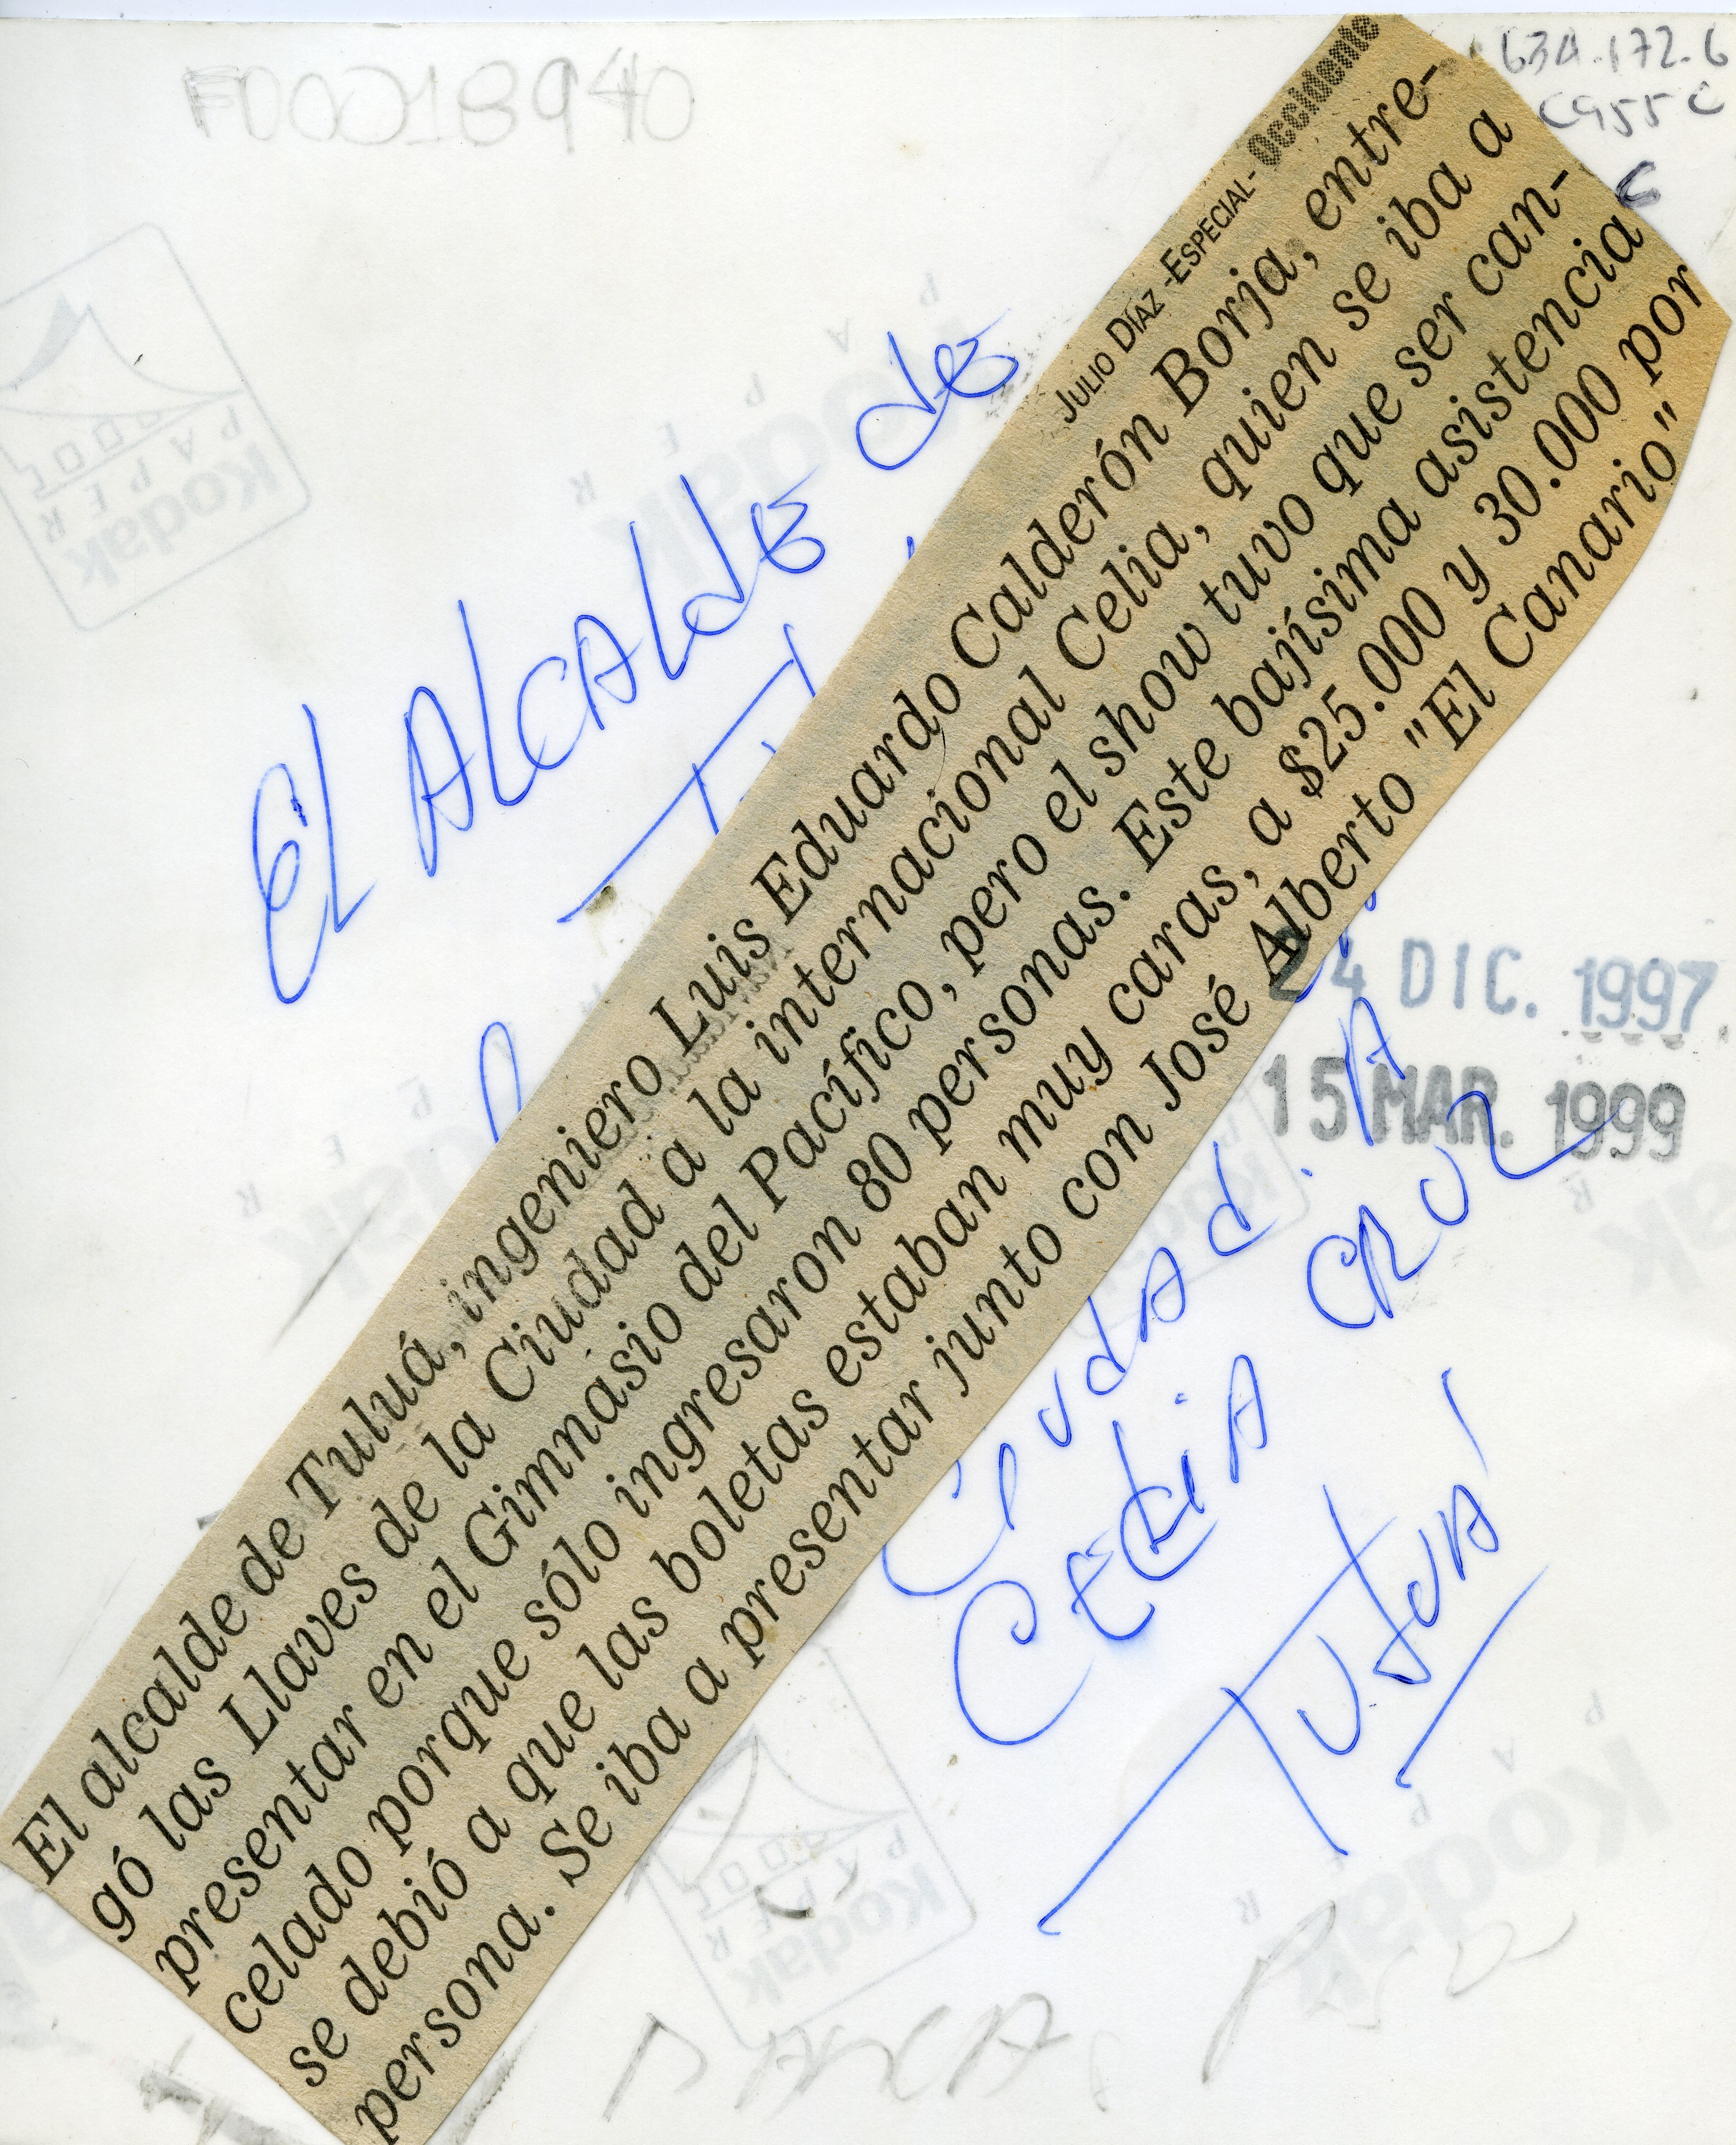 F00018940
634.172.6
C955C
JULIO DÍAZ -ESPECIAL- Occidente
El alcalde de Tuluá, ingeniero Luis Eduardo Calderón Borja, entre-
gó las Llaves de la Ciudad a la internacional Celia, quien se iba a
presentar en el Gimnasio del Pacífico, pero el show tuvo que ser can-
celado porque sólo ingresaron 80 personas. Este bajísima asistencia
se debió a que las boletas estaban muy caras, a $25.000 y 30.000 por
persona. Se iba a presentar junto con José Alberto "El Canario"
EL ALCALDE DE
24 DIC. 1997
15 MAR. 1999
Ciudad. A
CELIA CRUZ
TULUÁ
Kodak
PAPER